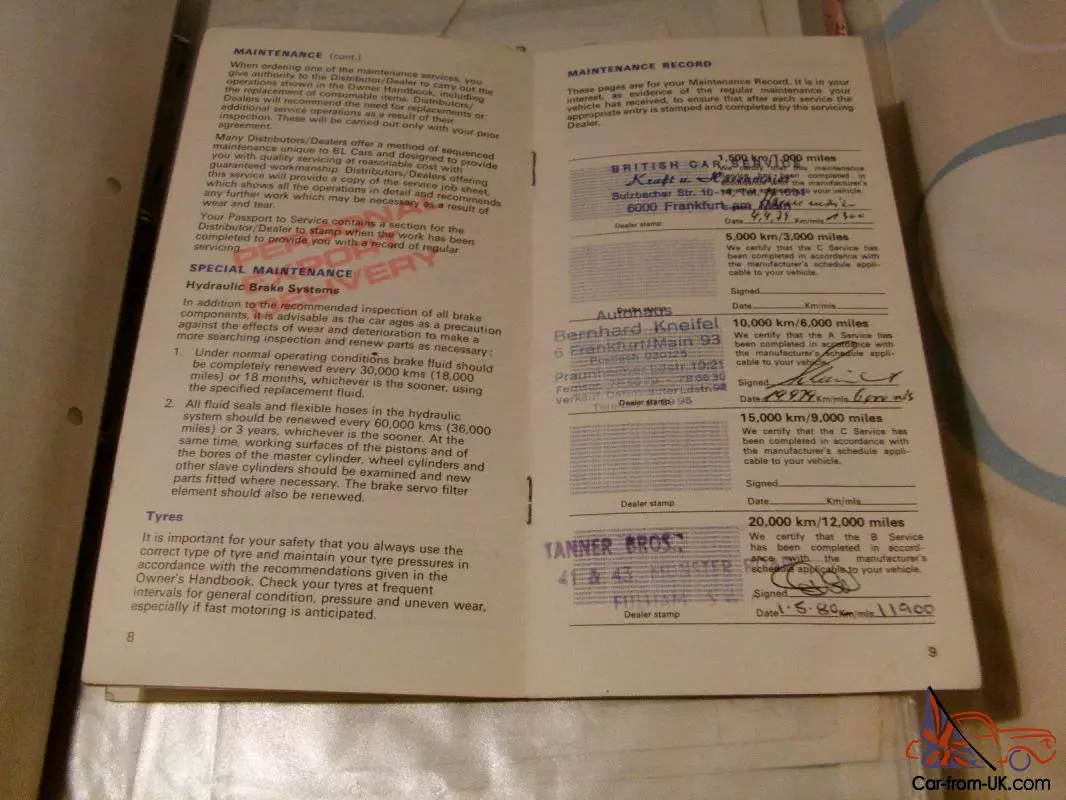 MAINTENANCE (cont.)
When ordering one of the maintenance services, you
give authority to the Distributor/Dealer to carry out the
operations shown in the Owner Handbook, including
the replacement of consumable items. Distributors/
Dealers will recommend the need for replacements or
additional service operations as a result of their
inspection. These will be carried out only with your prior
agreement.
Many Distributors/Dealers offer a method of sequenced
maintenance unique to BL Cars and designed to provide
you with quality servicing at reasonable cost with
guaranteed workmanship. Distributors/Dealers offering
this service will provide a copy of the service job sheet,
which shows all the operations in detail and recommends
any further work which may be necessary as a result of
wear and tear.
Your Passport to Service contains a section for the
Distributor/Dealer to stamp when the work has been
completed to provide you with a record of regular
servicing.
PERSONAL
EXPORT
DELIVERY
SPECIAL MAINTENANCE
Hydraulic Brake Systems
In addition to the recommended inspection of all brake
components, it is advisable as the car ages as a precaution
against the effects of wear and deterioration to make a
more searching inspection and renew parts as necessary:
1. Under normal operating conditions brake fluid should
be completely renewed every 30,000 kms (18,000
miles) or 18 months, whichever is the sooner, using
the specified replacement fluid.
2. All fluid seals and flexible hoses in the hydraulic
system should be renewed every 60,000 kms (36,000
miles) or 3 years, whichever is the sooner. At the
same time, working surfaces of the pistons and of
the bores of the master cylinder, wheel cylinders and
other slave cylinders should be examined and new
parts fitted where necessary. The brake servo filter
element should also be renewed.
Tyres
It is important for your safety that you always use the
correct type of tyre and maintain your tyre pressures in
accordance with the recommendations given in the
Owner's Handbook. Check your tyres at frequent
intervals for general condition, pressure and uneven wear,
especially if fast motoring is anticipated.
8
MAINTENANCE RECORD
These pages are for your Maintenance Record. It is in your
interest, as evidence of the regular maintenance your
vehicle has received, to ensure that after each service the
appropriate entry is stamped and completed by the servicing
Dealer.
1,500 km/1,000 miles
We certify that the maintenance
service has been completed in
accordance with the manufacturer's
schedule applicable to your vehicle.
BRITISH CAR SERVICE
Kraft u.
Sulzbacher Str. 10-14, Tel.
6000 Frankfurt am Main
Date 4.4.79 Km/mls 1300
Dealer stamp
5,000 km/3,000 miles
We certify that the C Service has
been completed in accordance with
the manufacturer's schedule appli-
cable to your vehicle.
Signed
Date Km/mls
Dealer stamp
10,000 km/6,000 miles
We certify that the A Service has
been completed in accordance with
the manufacturer's schedule appli-
cable to your vehicle.
Signed
Date Km/mls 6000 mls
Autohaus
Bernhard Kneifel
6 Frankfurt/Main 93
Postfach 930125
Praunheimer Ldstr. 19/21
Dealer stamp
15,000 km/9,000 miles
We certify that the C Service has
been completed in accordance with
the manufacturer's schedule appli-
cable to your vehicle.
Signed
Date Km/mls
Dealer stamp
20,000 km/12,000 miles
We certify that the B Service
has been completed in accord-
ance with the manufacturer's
schedule applicable to your vehicle.
Signed
Date 1.5.80 Km/mls 11900
TANNER BROS.
41 & 43 MUNSTER
FULHAM S.W.
Dealer stamp
9
Car-from-UK.com